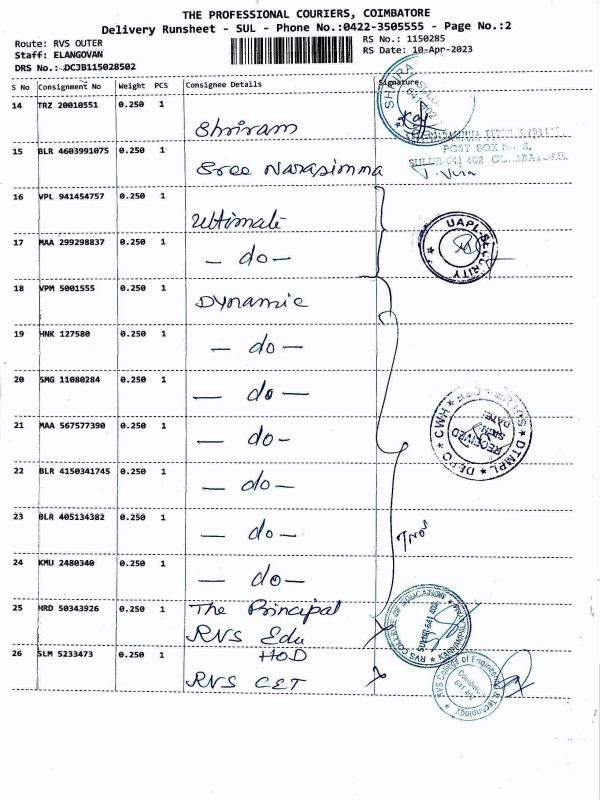 THE PROFESSIONAL COURIERS, COIMBATORE
Delivery Runsheet - SUL - Phone No.:0422-3505555 - Page No.:2
Route: RVS OUTER
RS No.: 1150285
Staff: ELANGOVAN
RS Date: 10-Apr-2023
DRS No.: DCJB115028502
S No Consignment No Weight PCS Consignee Details Signature
14 TRZ 20010551 0.250 1 Shriram
15 BLR 4603991075 0.250 1 Sree Narasimma
POST BOX No. 2,
SULUR-641 402 COIMBATORE.
16 VPL 941454757 0.250 1 Ultimate
UAPL-SECURITY
17 MAA 299298837 0.250 1 — do —
18 VPM 5001555 0.250 1 Dynamic
19 HNK 127580 0.250 1 — do —
20 SMG 11080284 0.250 1 — do —
21 MAA 567577390 0.250 1 — do -
DTMPL * DEPC * CWH
RECEIVED
SIGN:
DATE:
22 BLR 4150341745 0.250 1 — do —
23 BLR 405134382 0.250 1 — do —
24 KMU 2480340 0.250 1 — do —
25 HRD 50343926 0.250 1 The Principal
RVS Edu
RVS COLLEGE OF EDUCATION
SULUR-641 402
26 SLM 5233473 0.250 1 HOD
RVS CET
RVS College of Engineering & Technology
Coimbatore
641 402